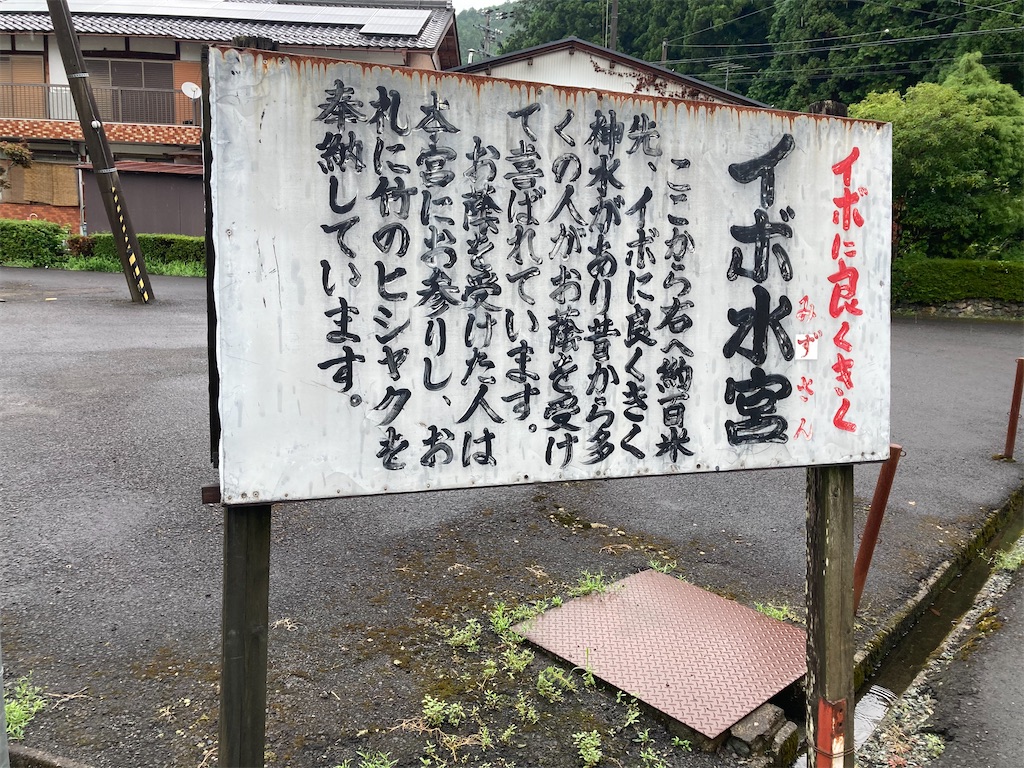 イボに良くきく
みずぐさん
イボ水宮
ここから右へ納百米
先、イボに良くきく
神水があり昔から多
くの人がお蔭を受け
て喜ばれています。
お蔭を受けた人は
本宮にお参りし、お
札に竹のヒシャクを
奉納しています。